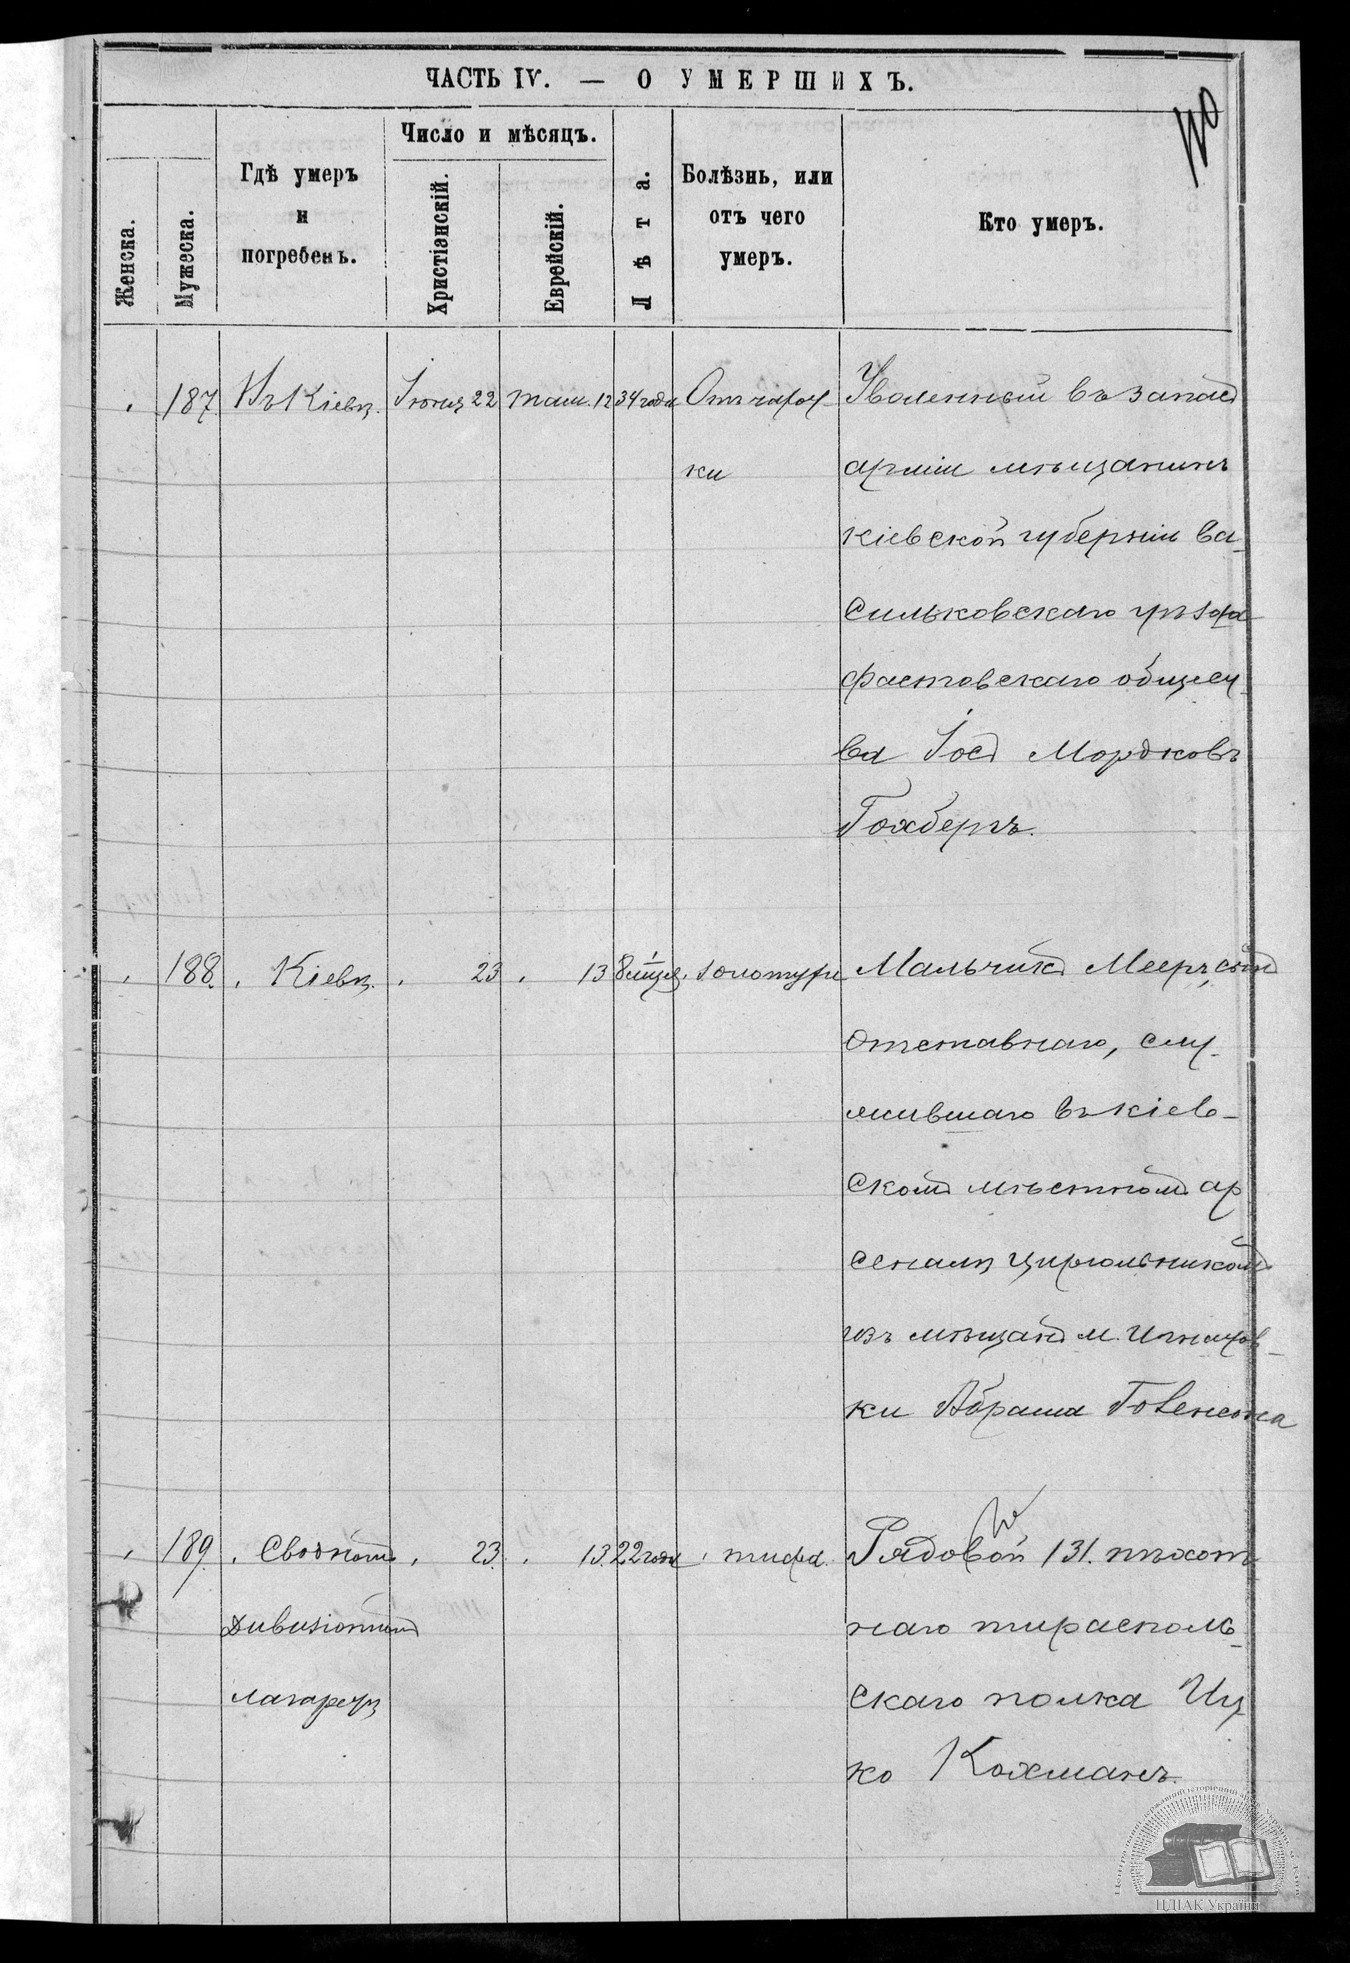 ЧАСТЬ IV. — О УМЕРШИХЪ.
110
Женска.
Мужеска.
Гдѣ умеръ
и
погребенъ.
Число и мѣсяцъ.
Христіэнскій.
Еврейскій.
Лѣта.
Болѣзнь, или
отъ чего
умеръ.
Кто умеръ.
187 Въ Кіевѣ. Іюня 22 там. 12 34 года Отъ чахот- Уволенный въ запасъ
ки арміи мѣщанинъ
кіевской губерніи Ва-
сильковскаго уѣзда
фастовскаго общест-
ва Іосъ Мордковъ
Гохбергъ.
188. Кіевѣ. 23 13 8 мѣся. золотухи Мальчикъ Мееръ, сынъ
отставнаго, слу-
жившаго въ кіев-
скомъ мѣстномъ ар
сеналѣ цирюльникомъ
изъ мѣщанъ м. Игнатов-
ки Абраша
189. Сводномъ 23. 13. 22 года тифа. Рядовой 131. пѣхот
дивизіонномъ наго тирасполь-
лазаретѣ скаго полка Иц-
ко Кохманъ.
ЦДІАК України